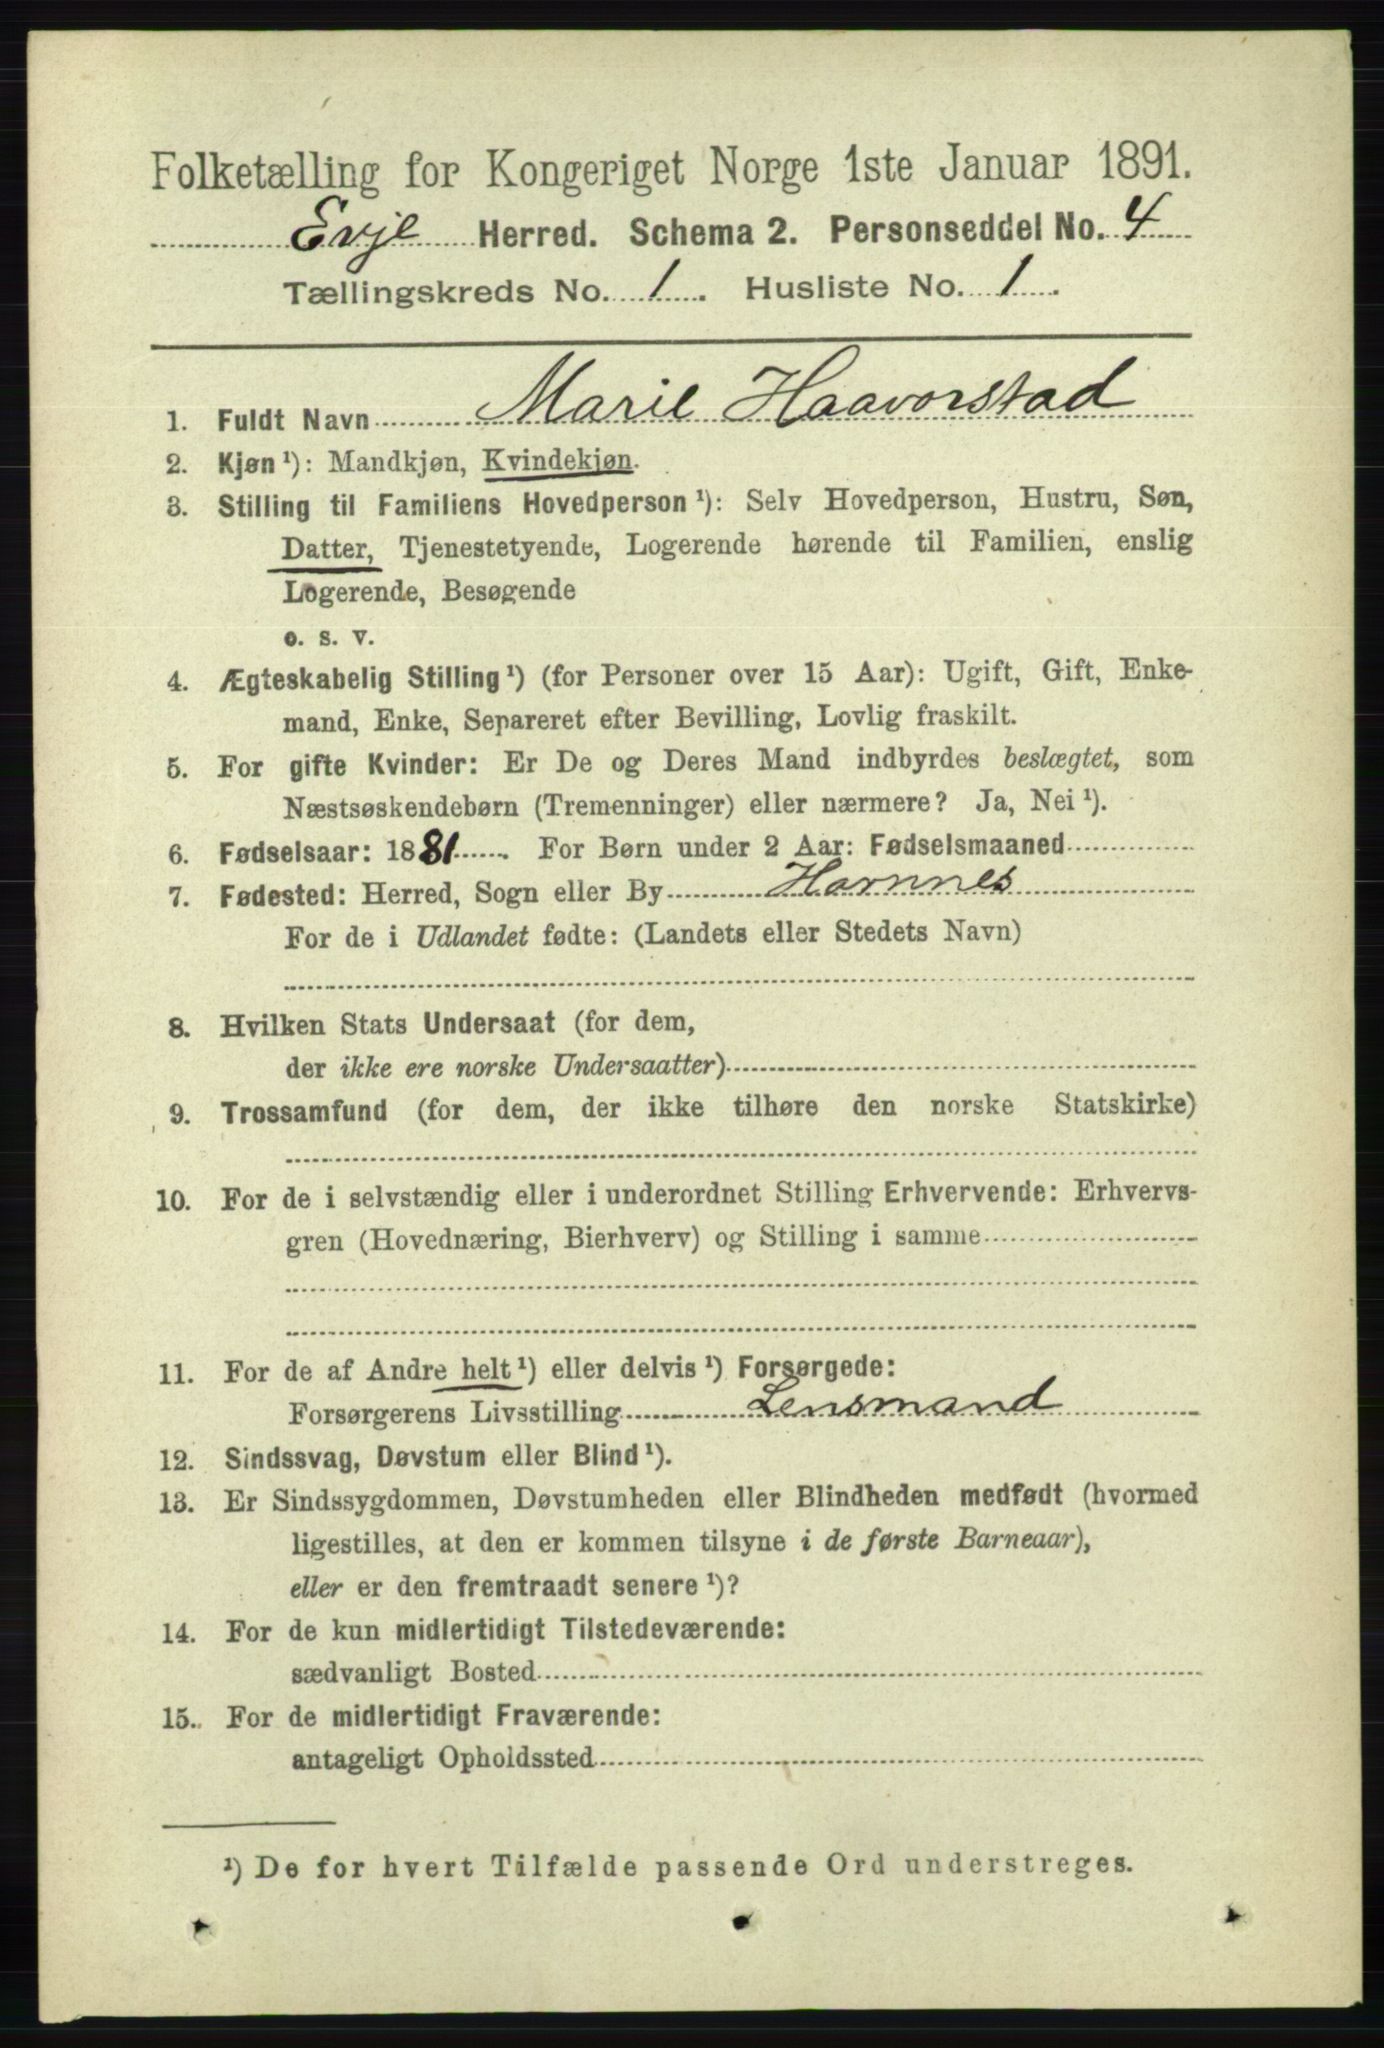 Folketælling for Kongeriget Norge 1ste Januar 1891.
Evje Herred. Schema 2. Personseddel No. 4
Tællingskreds No. 1. Husliste No. 1.
1. Fuldt Navn Marie Haavorstad
2. Kjøn¹): Mandkjøn, Kvindekjøn.
3. Stilling til Familiens Hovedperson¹): Selv Hovedperson, Hustru, Søn,
Datter, Tjenestetyende, Logerende hørende til Familien, enslig
Logerende, Besøgende
o. s. v.
4. Ægteskabelig Stilling¹) (for Personer over 15 Aar): Ugift, Gift, Enke-
mand, Enke, Separeret efter Bevilling, Lovlig fraskilt.
5. For gifte Kvinder: Er De og Deres Mand indbyrdes beslægtet, som
Næstsøskendebørn (Tremenninger) eller nærmere? Ja, Nei¹).
6. Fødselsaar: 1881. For Børn under 2 Aar: Fødselsmaaned
7. Fødested: Herred, Sogn eller By Hornnes
For de i Udlandet fødte: (Landets eller Stedets Navn)
8. Hvilken Stats Undersaat (for dem,
der ikke ere norske Undersaatter)
9. Trossamfund (for dem, der ikke tilhøre den norske Statskirke)
10. For de i selvstændig eller i underordnet Stilling Erhvervende: Erhvervs-
gren (Hovednæring, Bierhverv) og Stilling i samme
11. For de af Andre helt¹) eller delvis¹) Forsørgede:
Forsørgerens Livsstilling Lensmand
12. Sindssvag, Døvstum eller Blind¹).
13. Er Sindssygdommen, Døvstumheden eller Blindheden medfødt (hvormed
ligestilles, at den er kommen tilsyne i de første Barneaar),
eller er den fremtraadt senere¹)?
14. For de kun midlertidigt Tilstedeværende:
sædvanligt Bosted
15. For de midlertidigt Fraværende:
antageligt Opholdssted
¹) De for hvert Tilfælde passende Ord understreges.